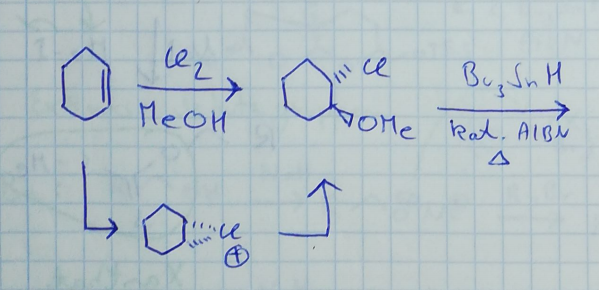 Cl₂
MeOH
Cl
OMe
Bu₃SnH
kat. AIBN
Δ
Cl
⊕